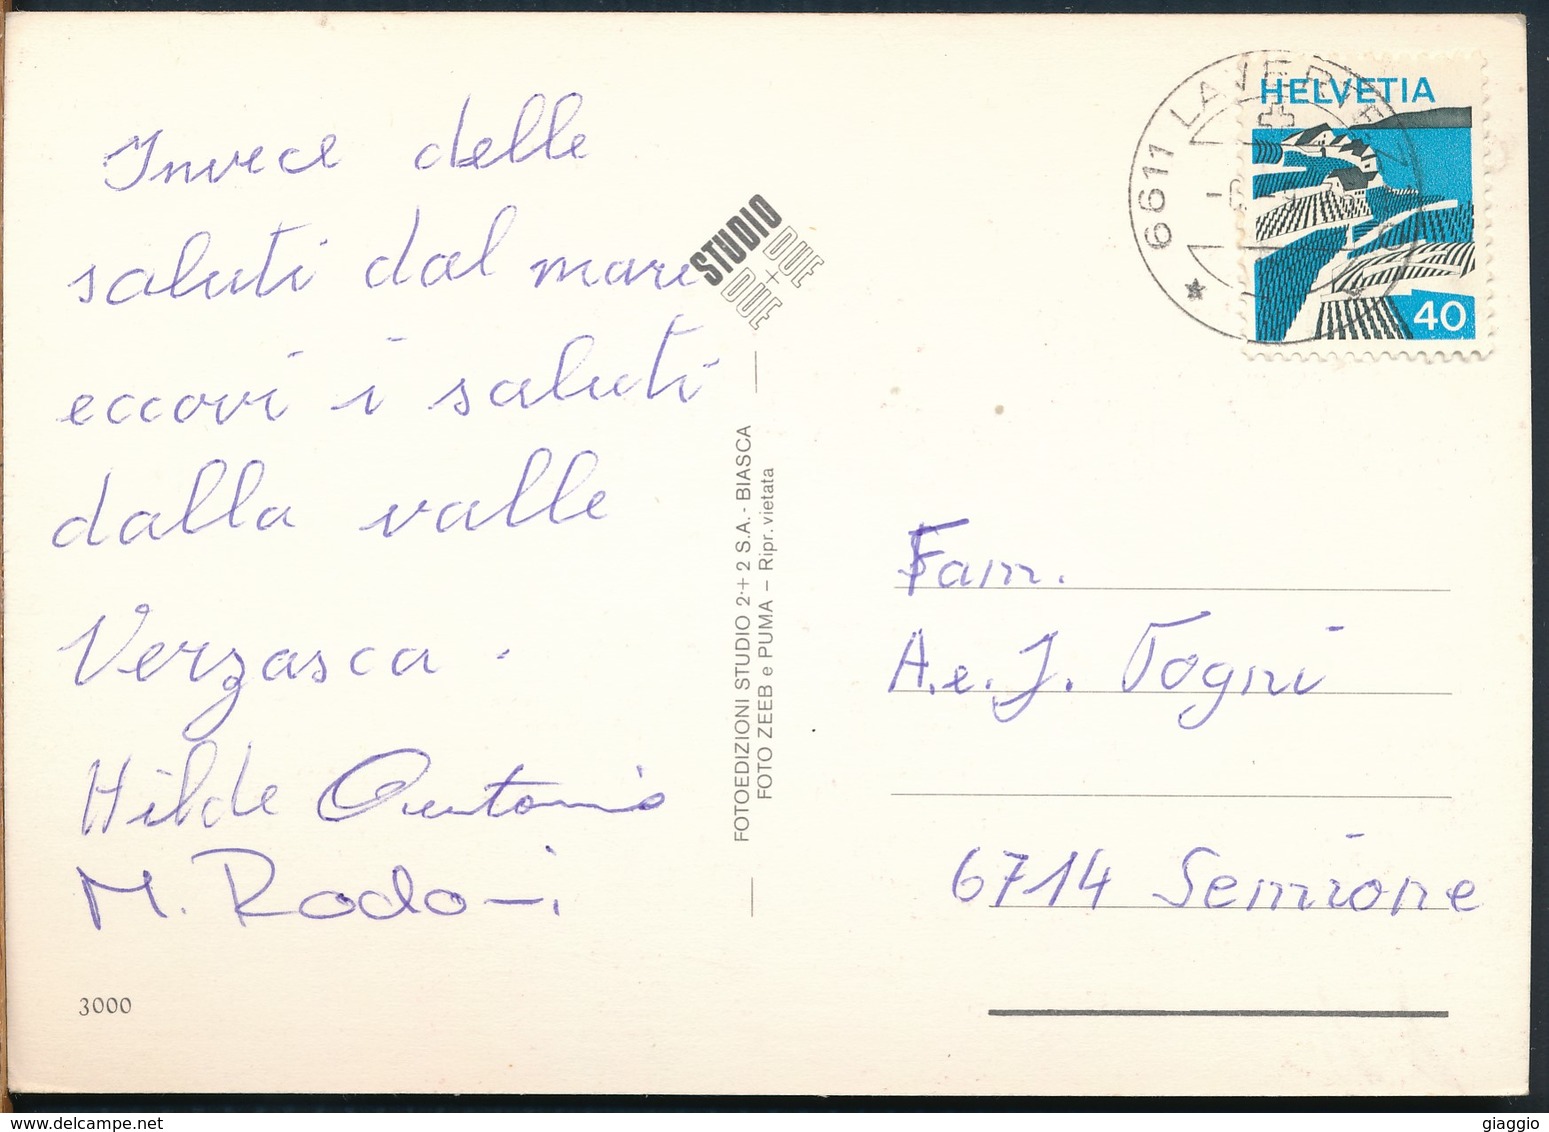 Invece delle
saluti dal mare
eccovi i saluti
dalla valle
Verzasca.
Hilde Antonio
M. Rodoni
3000
STUDIO
DUE
+
DUE
FOTOEDIZIONI STUDIO 2+2 S.A. - BIASCA
FOTO ZEEB e PUMA – Ripr. vietata
6611 LAVERTEZZO
HELVETIA
40
Fam.
A. e. J. Togni
6714 Semione
giaggio